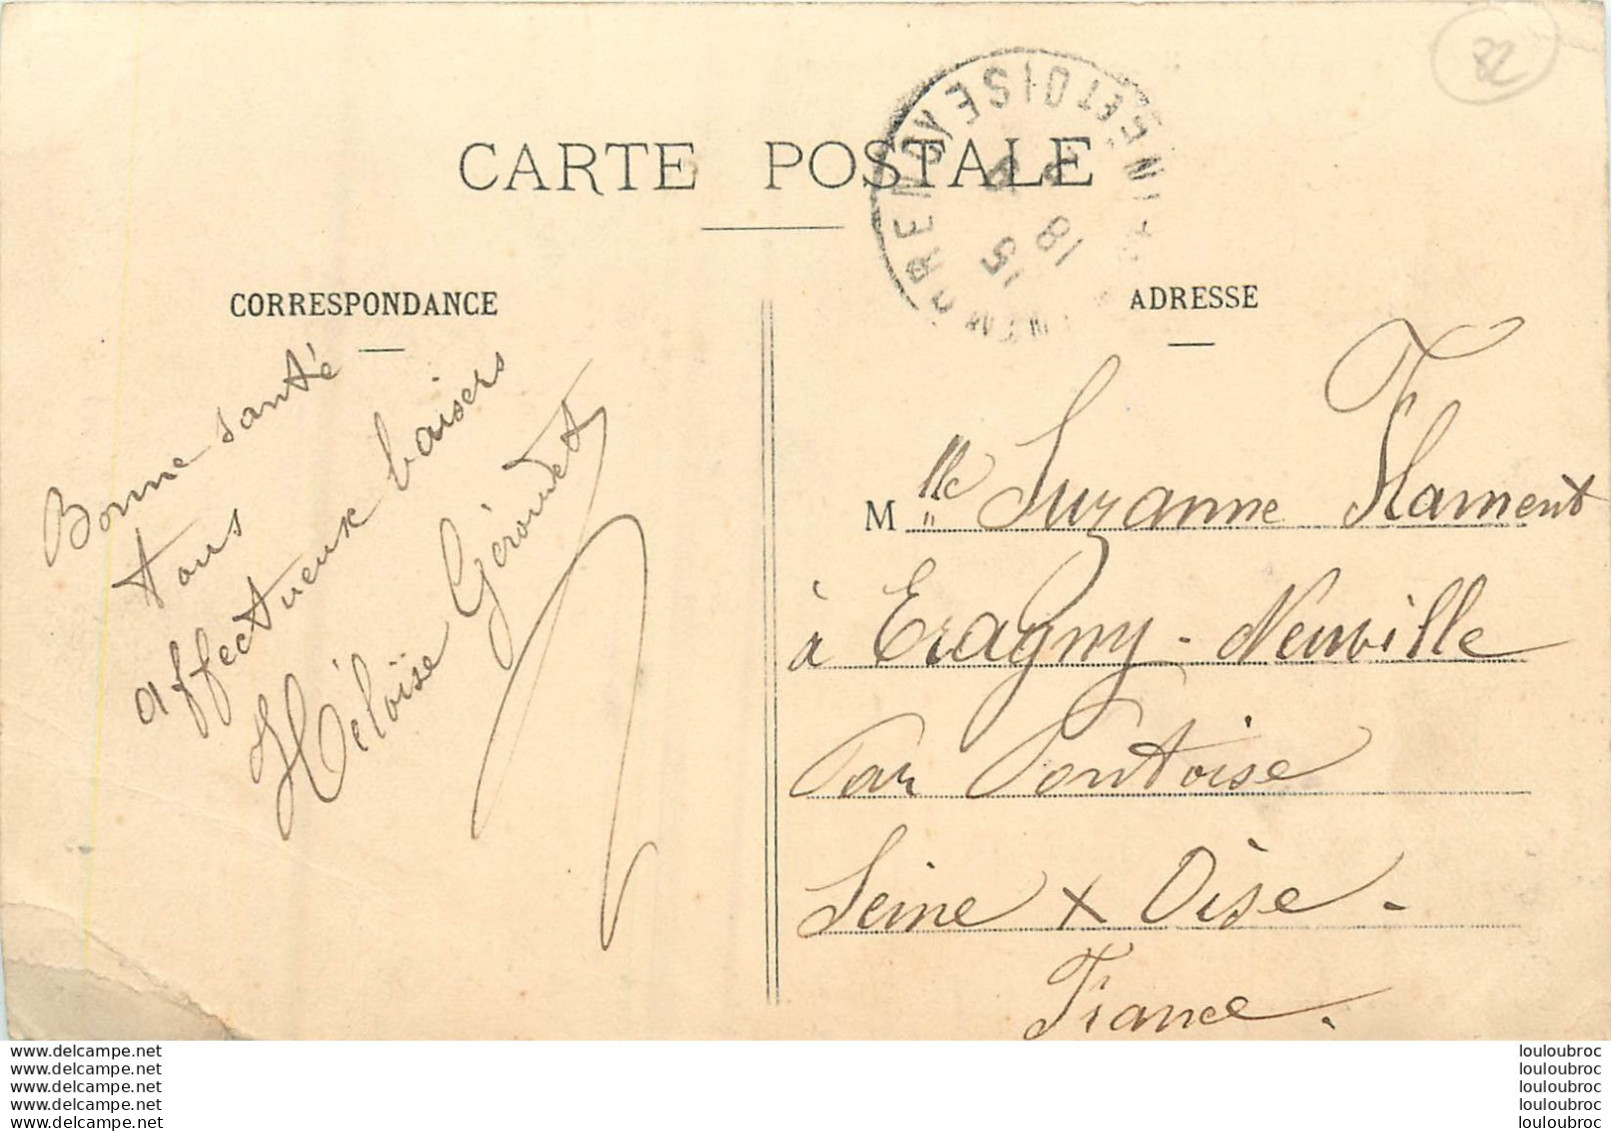 82
CARTE POSTALE
CORRESPONDANCE
ADRESSE
Bonne santé
tous
affectueux baisers
Héloïse Géroudet
Mlle Suzanne Flament
à Eragny-Neuville
Par Pontoise
Seine & Oise.
France.
www.delcampe.net
www.delcampe.net
www.delcampe.net
www.delcampe.net
www.delcampe.net
louloubroc
louloubroc
louloubroc
louloubroc
louloubroc